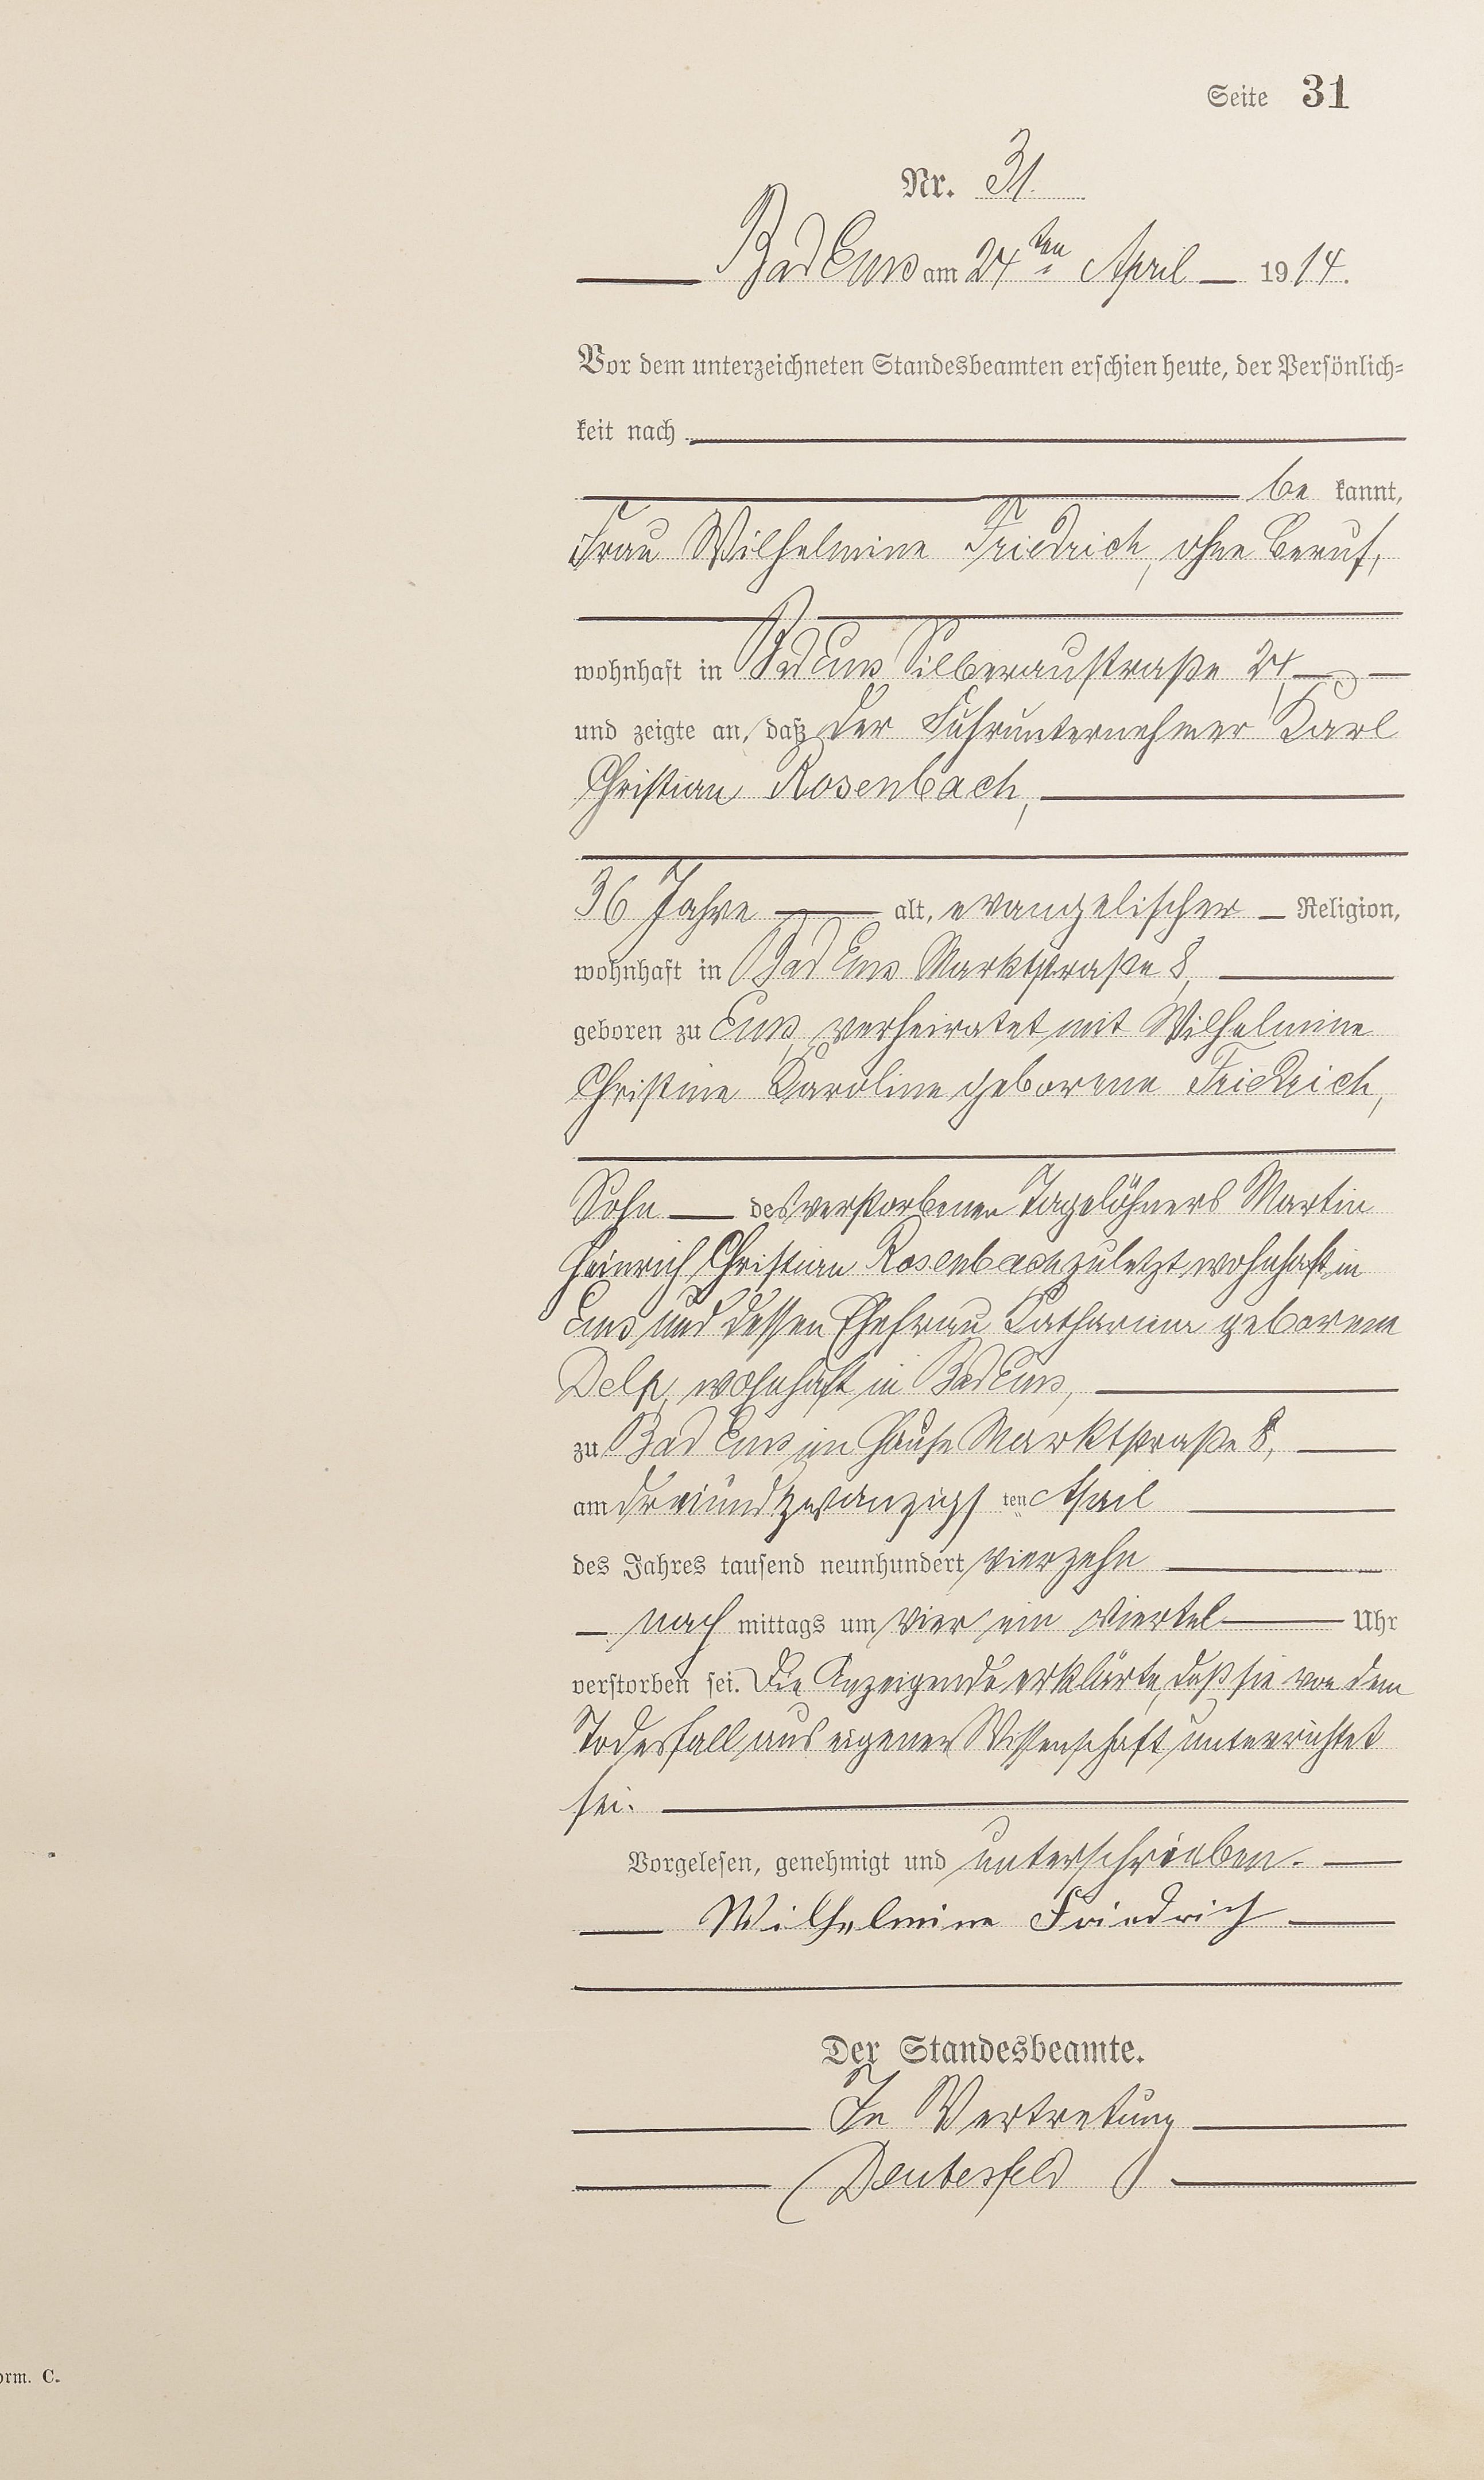 Seite 31
Nr. 31.
Bad Ems am 24ten April 1914.
Vor dem unterzeichneten Standesbeamten erschien heute, der Persönlich-
keit nach
be kannt,
Frau Wilhelmine Friedrich, ohne Beruf,
wohnhaft in Bad Ems Silberaustraße 24
und zeigte an, daß der Fuhrunternehmer Karl
Christian Rosenbach,
36 Jahre alt, evangelischer Religion,
wohnhaft in Bad Ems Marktstraße 8,
geboren zu Ems, verheiratet mit Wilhelmine
Christine Karoline geborene Friedrich,
Sohn des verstorbenen Tagelöhners Martin
Heinrich Christian Rosenbach zuletzt wohnhaft in
Ems und dessen Ehefrau Katharina geborene
Delp, wohnhaft in Bad Ems,
zu Bad Ems im Hause Marktstraße 8,
am dreiundzwanzigsten April
des Jahres tausend neunhundert vierzehn
nach mittags um vier ein viertel Uhr
verstorben sei. Die Anzeigende erklärte, daß sie von dem
Todesfall aus eigener Wissenschaft unterrichtet
sei.
Vorgelesen, genehmigt und unterschrieben.
Wilhelmine Friedrich
Der Standesbeamte.
In Vertretung
Deutesfeld
orm. C.